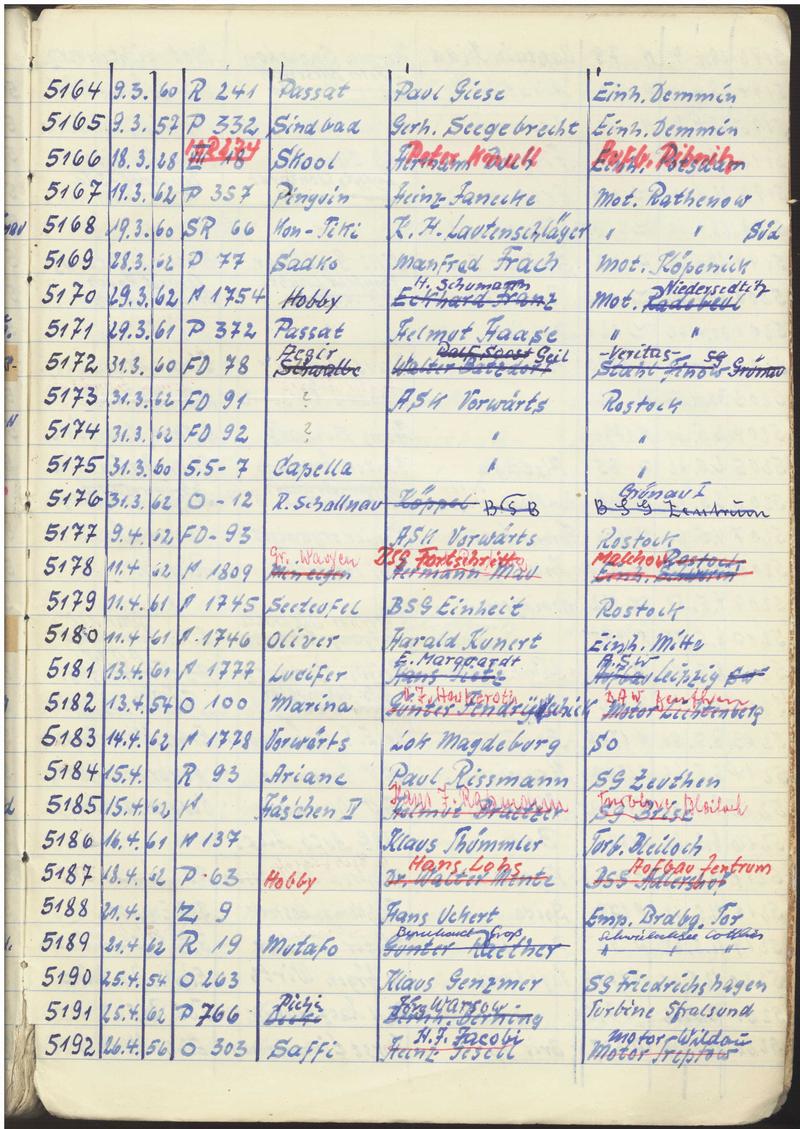 5164 9.3. 60 R 241 Passat Paul Giese Einh. Demmin
5165 9.3. 57 P 332 Sindbad Gerh. Seegebrecht Einh. Demmin
5166 18.3. 28 Skool Peter Knull
5167 19.3. 62 P 357 Pinguin Heinz Janecke Mot. Rathenow
5168 19.3. 60 SR 66 Kon-Tiki K. H. Lautenschläger " " Süd
5169 28.3. 62 P 77 Sadko Manfred Frach Mot. Köpenick
H. Schumann Niedersedlitz
5170 29.3. 62 H 1754 Hobby Eckhard Franz Mot. Radebeul
5171 29.3. 61 P 372 Passat Helmut Haase " "
Aegir Geil -Veritas- SG
5172 31.3. 60 FD 78 Schwalbe Walter Stahl Finow Grünau
5173 31.3. 62 FD 91 ? ASK Vorwärts Rostock
5174 31.3. 62 FD 92 ? " "
5175 31.3. 60 5.5-7 Capella " "
Grünau I
5176 31.3. 62 O -12 R. Schallnau Köppel BSB BSG Zentrum
5177 9.4. 62 FD-93 ASK Vorwärts Rostock
Gr. Wagen BSG Fortschritt Malchow Rostock
5178 11.4. 62 H 1809 Hermann Einh. Schwerin
5179 11.4. 61 H 1745 Seeteufel BSG Einheit Rostock
5180 11.4 61 H 1746 Oliver Harald Kunert Einh. Mitte
E. Marquardt A.S.W
5181 13.4. 61 H 1777 Lucifer Hans Aufbau Leipzig
5182 13.4. 54 O 100 Marina Günter Motor Lichtenberg
5183 14.4. 62 H 1778 Vorwärts Lok Magdeburg So
5184 15.4. R 93 Ariane Paul Rissmann SG Zeuthen
Turbine Bleiloch
5185 15.4. 62 H Häschen II Helmut SG
5186 16.4. 61 H 137 Klaus Thümmler Turb. Bleiloch
Hans Lohs Aufbau Zentrum
5187 18.4. 62 P 63 Hobby Dr. Walter Mentz BSG Adlershof
5188 21.4. Z 9 Hans Uckert Emp. Brdbg. Tor
Bernhard Groß
5189 21.4. 62 R 19 Mutafo Günter Kaether " "
5190 25.4. 54 O 263 Klaus Genzmer SG Friedrichshagen
Pichi Warsow
5191 25.4. 62 P 766 Turbine Stralsund
H.J. Jacobi Motor Wildau
5192 26.4. 56 O 303 Saffi Heinz Gesell Motor Treptow